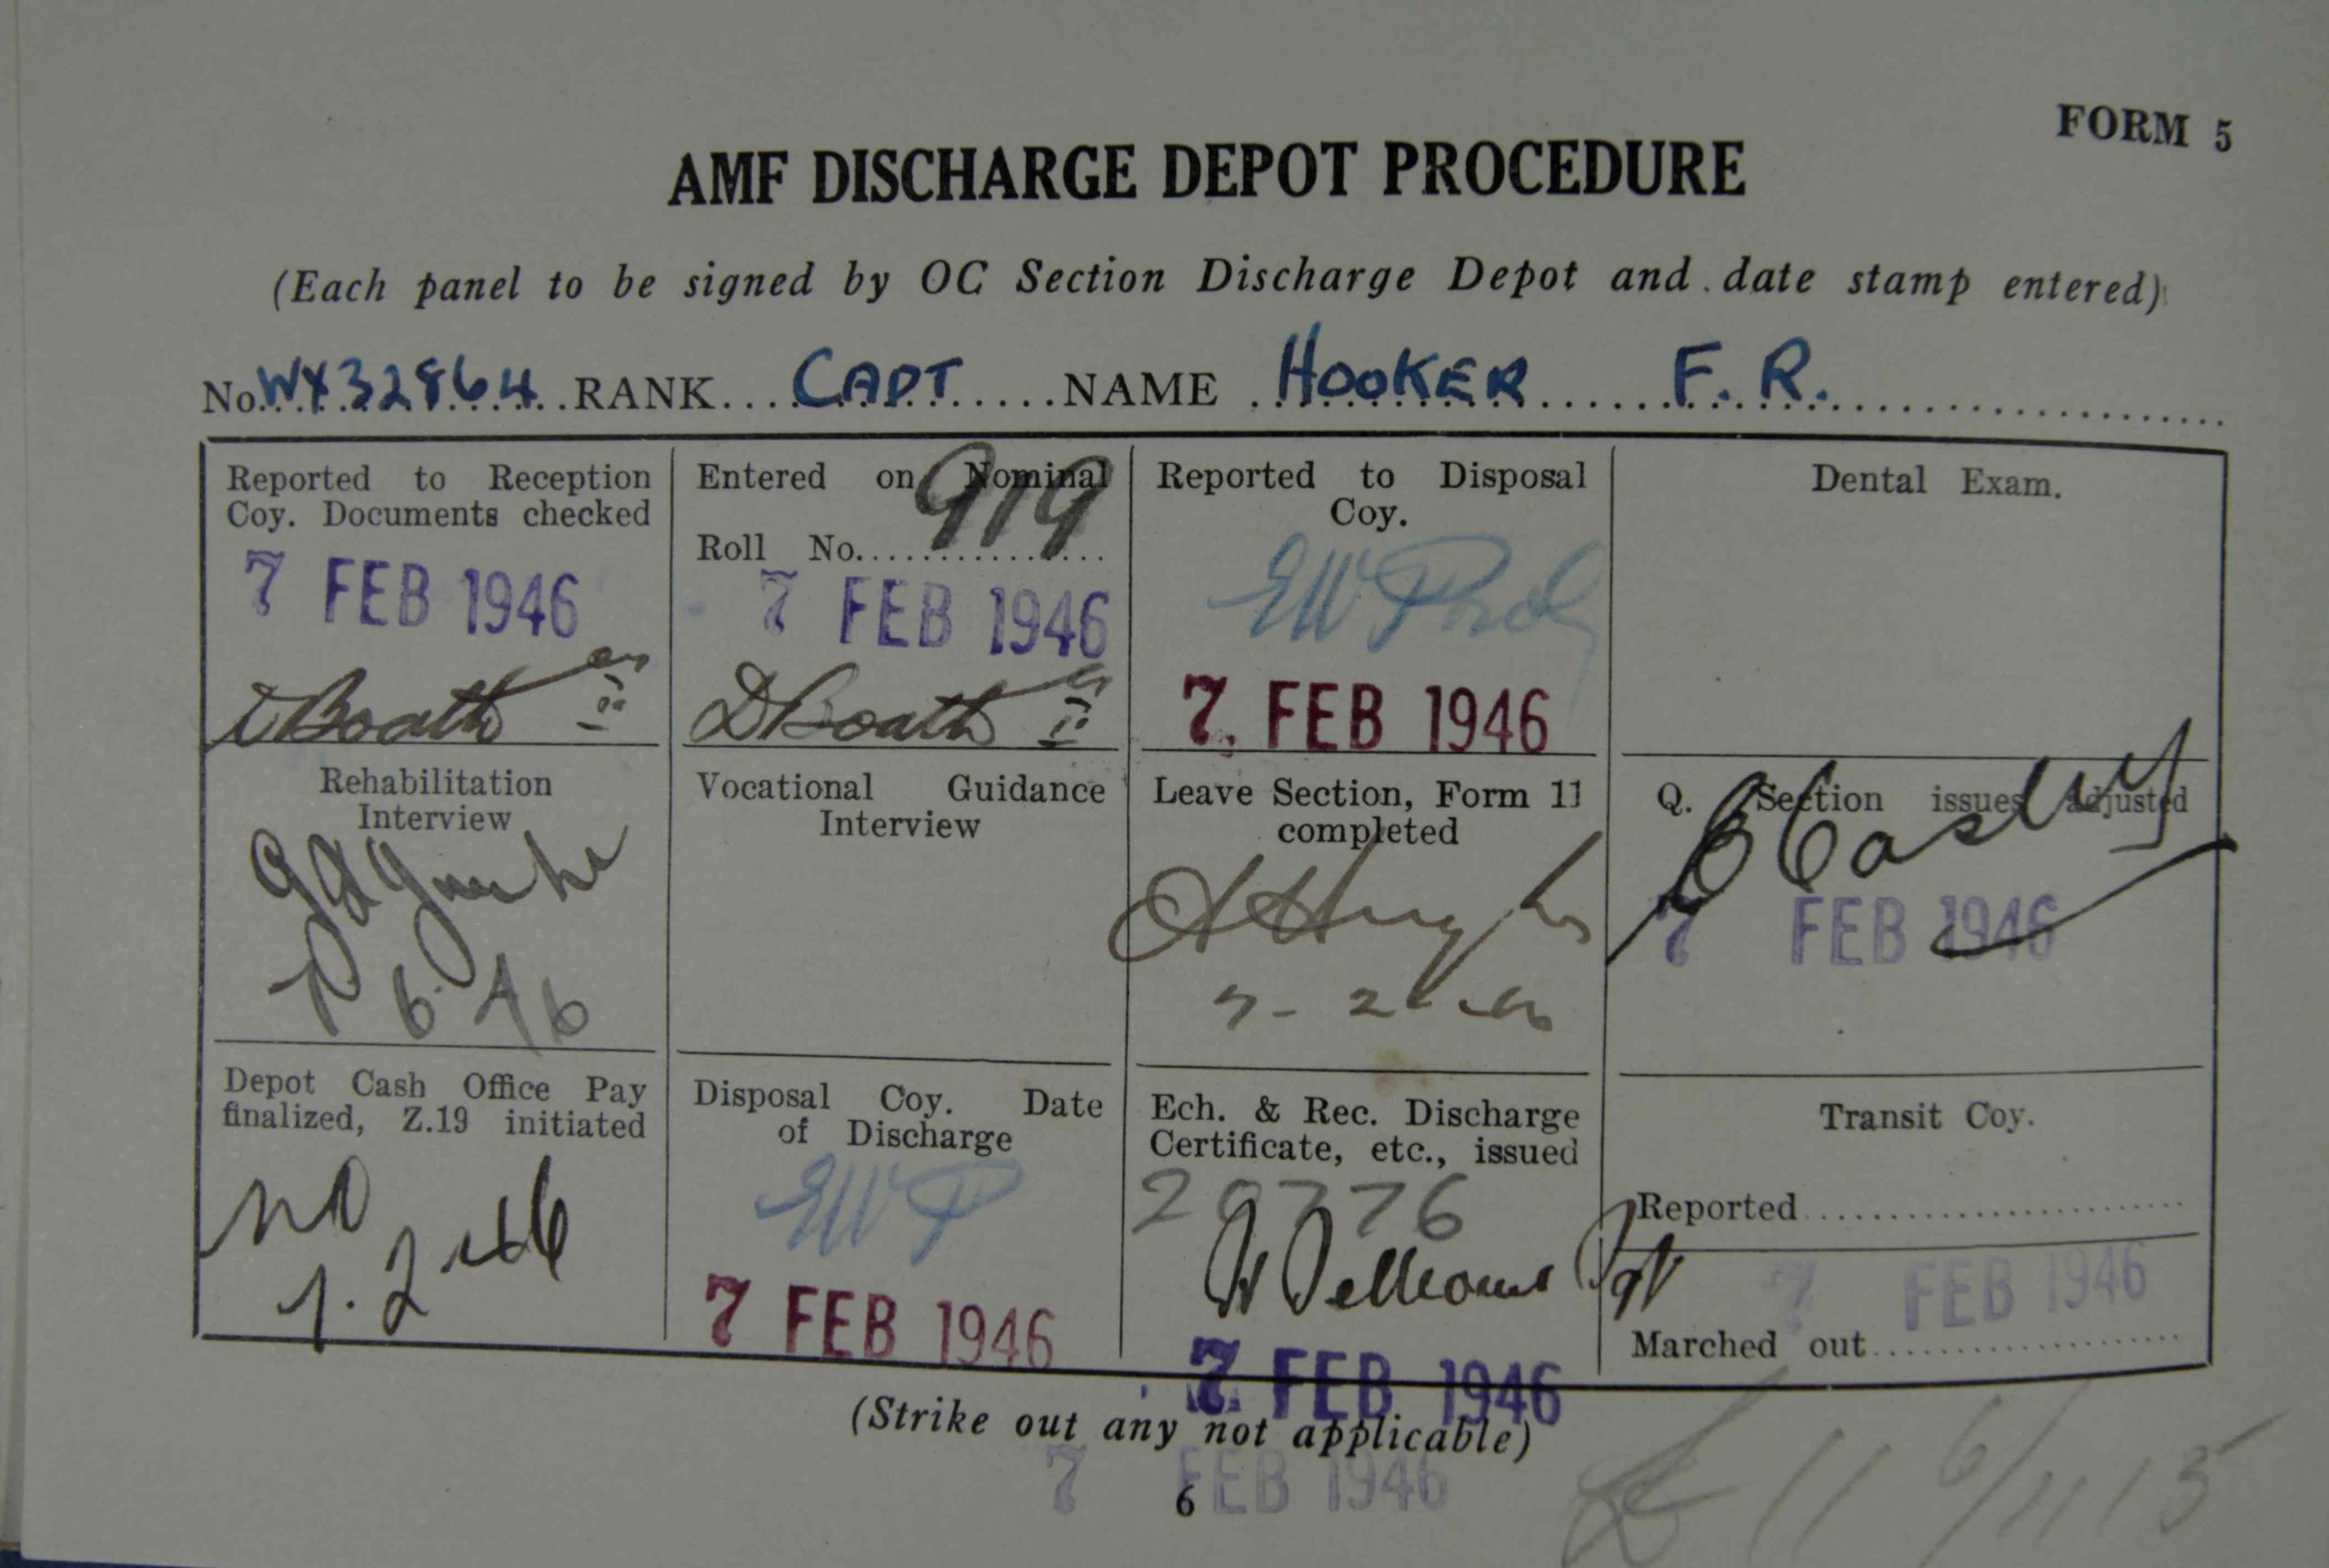 FORM 5
AMF DISCHARGE DEPOT PROCEDURE
(Each panel to be signed by OC Section Discharge Depot and date stamp entered)
No. WX32864 RANK CAPT NAME HOOKER F. R.
Reported to Reception
Coy. Documents checked
7 FEB 1946
Entered on Nominal
Roll No. 919
7 FEB 1946
D Boath
Reported to Disposal
Coy.
7 FEB 1946
Dental Exam.
Rehabilitation
Interview
Vocational Guidance
Interview
Leave Section, Form 11
completed
Q. Section issues adjusted
7 FEB 1946
Depot Cash Office Pay
finalized, Z.19 initiated
Disposal Coy. Date
of Discharge
EWP
7 FEB 1946
Ech. & Rec. Discharge
Certificate, etc., issued
7 FEB 1946
Transit Coy.
Reported
7 FEB 1946
Marched out
(Strike out any not applicable)
7 FEB 1946
6